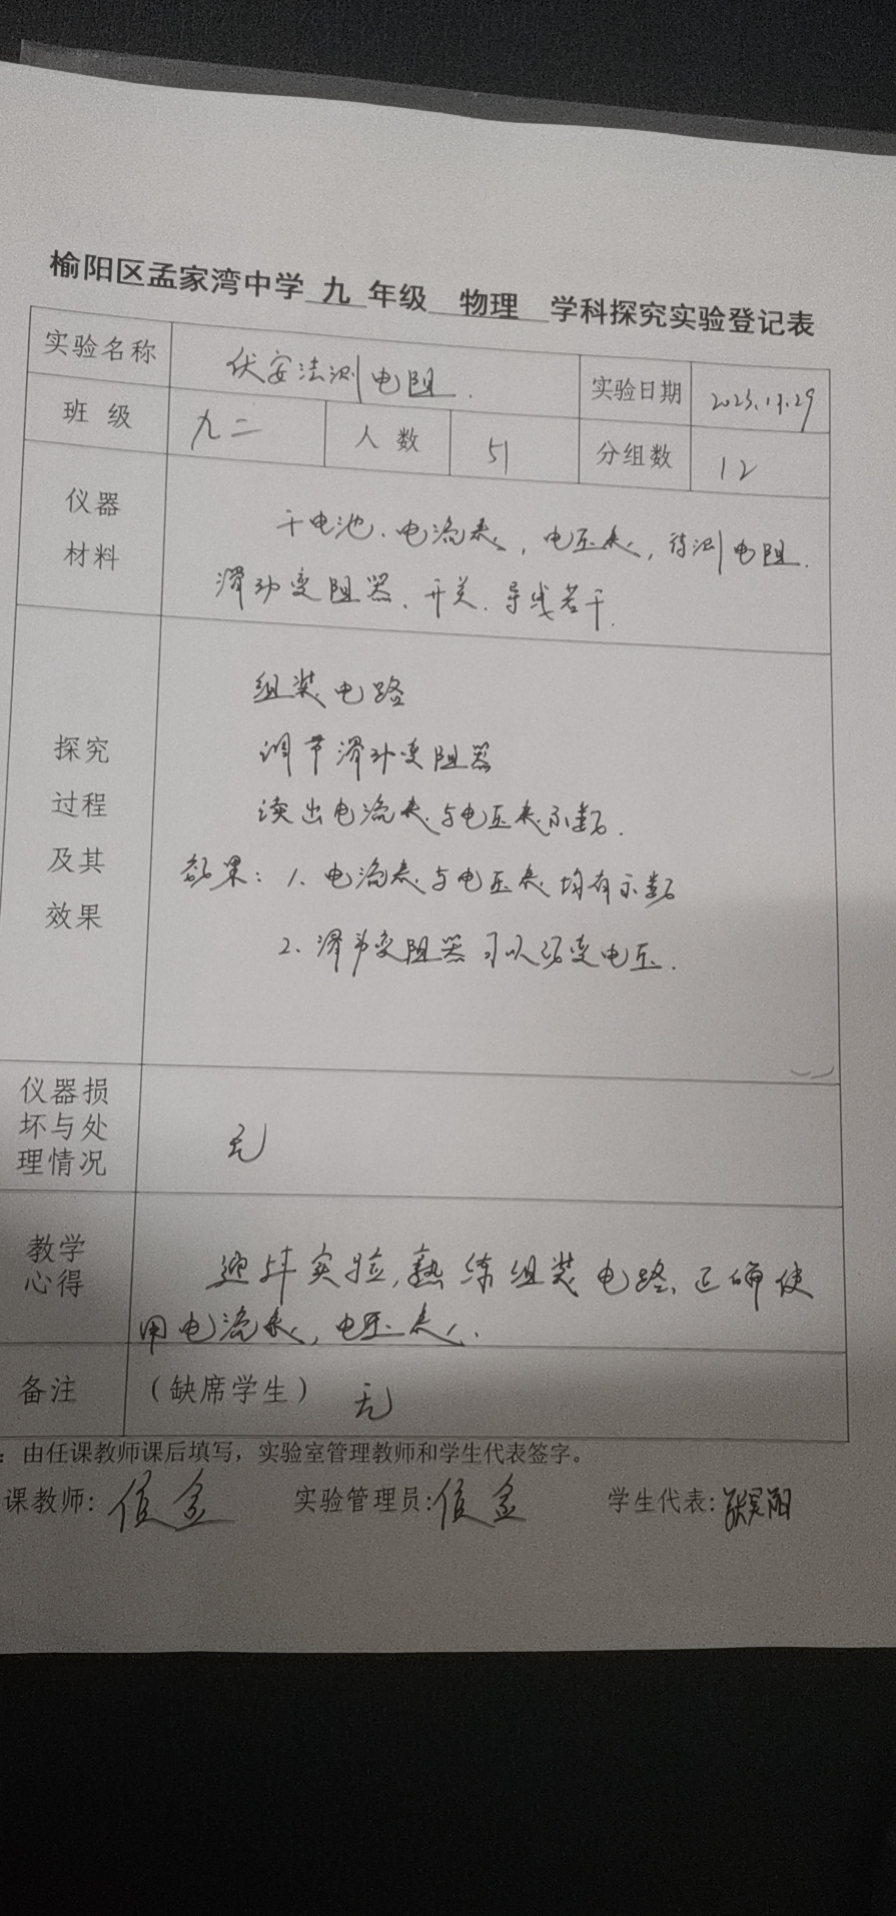 榆阳区孟家湾中学 九 年级 物理 学科探究实验登记表
实验名称 伏安法测电阻. 实验日期 2023.11.29
班 级 九二 人 数 51 分组数 12
仪器
材料
干电池、电流表, 电压表, 待测电阻.
滑动变阻器、开关、导线若干.
探究
过程
及其
效果
组装电路
调节滑动变阻器
读出电流表与电压表示数.
效果: 1、电流表与电压表均有示数
2、滑动变阻器可以改变电压.
仪器损
坏与处
理情况
无
教学
心得
实验,熟练组装电路、正确使
用电流表, 电压表.
备注 (缺席学生) 无
:由任课教师课后填写,实验室管理教师和学生代表签字。
课教师: 实验管理员: 学生代表: